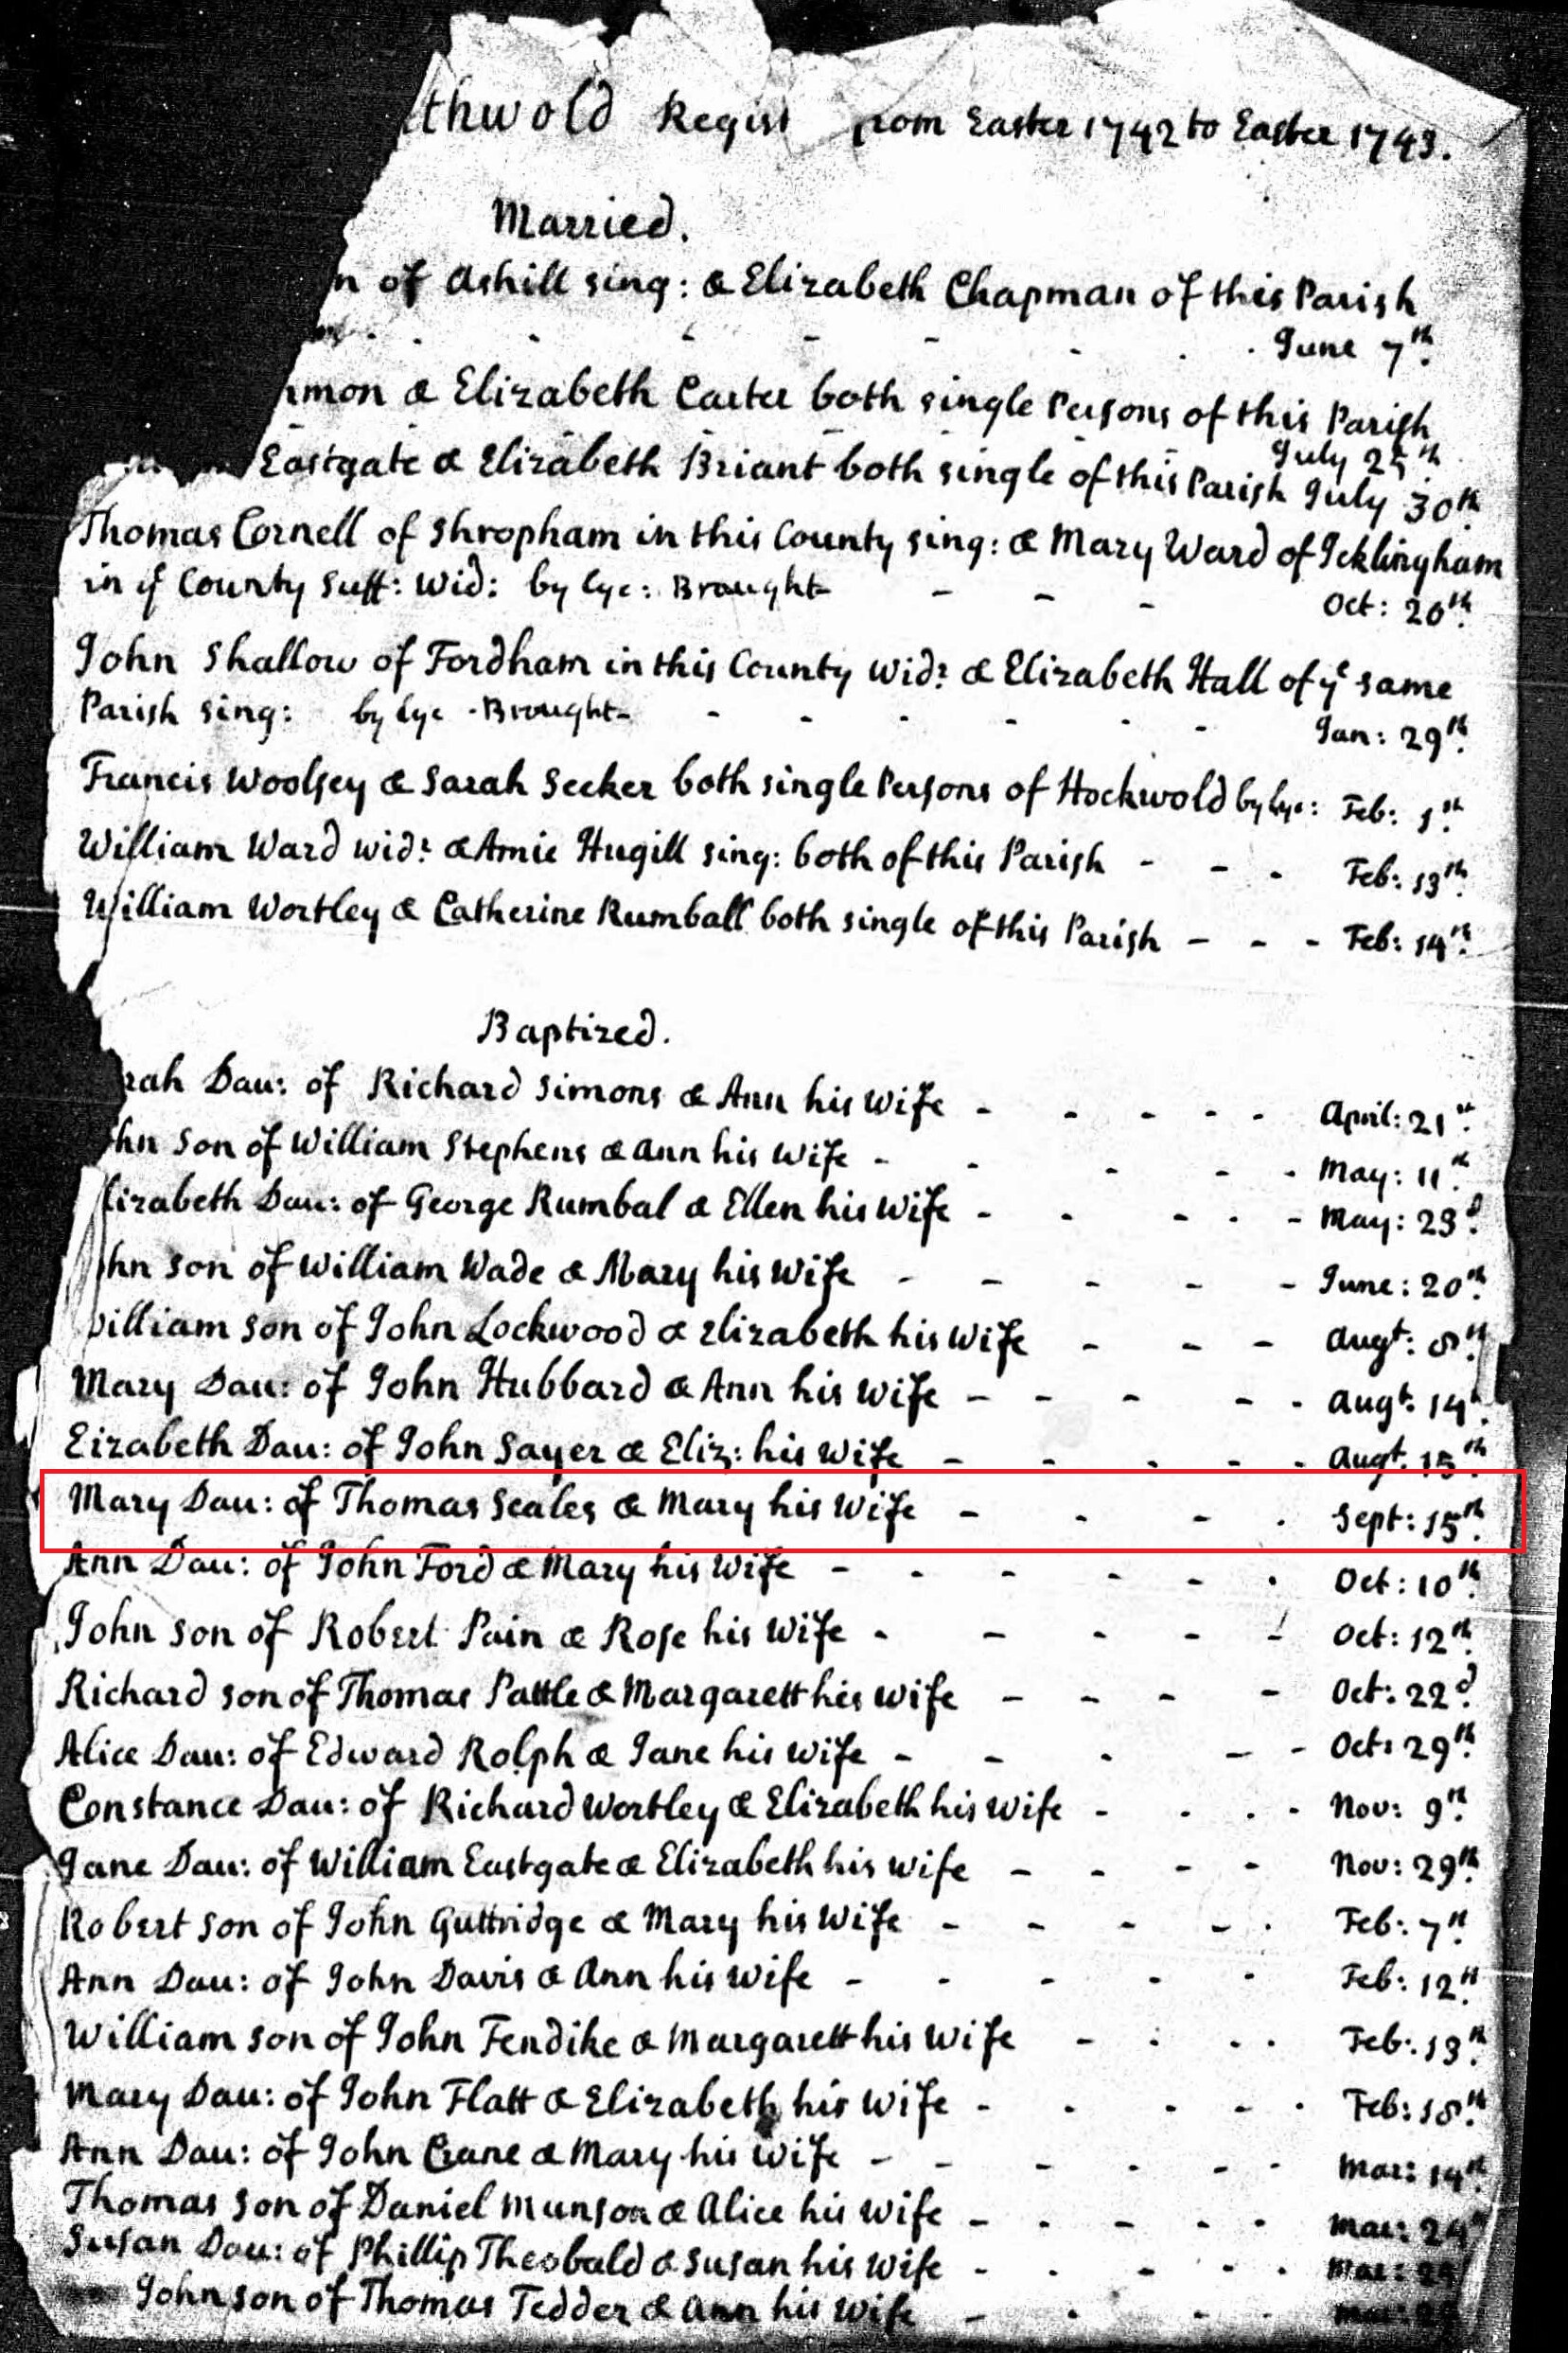 thwold Regist from Easter 1742 to Easter 1743.
Married.
n of Ashill sing: & Elizabeth Chapman of this Parish
June 7th.
mon & Elizabeth Carter both single Persons of this Parish
July 25th
Eastgate & Elizabeth Briant both single of this Parish July 30th.
Thomas Cornell of Shropham in this County sing: & Mary Ward of Icklingham
in ye County Suff: Wid: by Lyc: Brought - - - Oct: 20th.
John Shallow of Fordham in this County Widr & Elizabeth Hall of ye same
Parish sing: by Lyc - Brought - - - - - - Jan: 29th.
Francis Woolsey & Sarah Secker both single Persons of Hockwold by Lyc: Feb: 1st.
William Ward widr: & Amie Hugill sing: both of this Parish - - - Feb: 13th.
William Wortley & Catherine Rumball both single of this Parish - - - Feb: 14th.
Baptized.
rah Dau: of Richard Simons & Ann his Wife - - - - - April: 21st.
hn Son of William Stephens & Ann his Wife - - - - - May: 11th.
lizabeth Dau: of George Rumbal & Ellen his Wife - - - - - May: 23d.
hn son of William Wade & Mary his Wife - - - - - June: 20th.
william son of John Lockwood & Elizabeth his Wife - - - Augt: 8th.
Mary Dau: of John Hubbard & Ann his Wife - - - - - Augt: 14th.
Eizabeth Dau: of John Sayer & Eliz: his Wife - - - - - Augt. 15th
Mary Dau: of Thomas Scales & Mary his Wife - - - - Sept: 15th.
Ann Dau: of John Ford & Mary his Wife - - - - - - Oct: 10th.
John son of Robert Pain & Rose his Wife - - - - - Oct: 12th.
Richard son of Thomas Pattle & Margarett his Wife - - - - Oct: 22d.
Alice Dau: of Edward Rolph & Jane his Wife - - - - - Oct: 29th.
Constance Dau: of Richard Wortley & Elizabeth his Wife - - - - Nov: 9th.
Jane Dau: of William Eastgate & Elizabeth his Wife - - - - Nov: 29th.
Robert son of John Guttridge & Mary his Wife - - - - - Feb: 7th.
Ann Dau: of John Davis & Ann his Wife - - - - - Feb: 12th.
William son of John Fendike & Margarett his Wife - - - - Feb: 13th.
Mary Dau: of John Flatt & Elizabeth his Wife - - - - - Feb: 18th.
Ann Dau: of John Crane & Mary his Wife - - - - - - Mar: 14th.
Thomas son of Daniel Munson & Alice his Wife - - - - - Mar: 24th
Susan Dau: of Phillip Theobald & Susan his Wife - - - - - Mar:
John son of Thomas Tedder & Ann his Wife - - - - Mar: